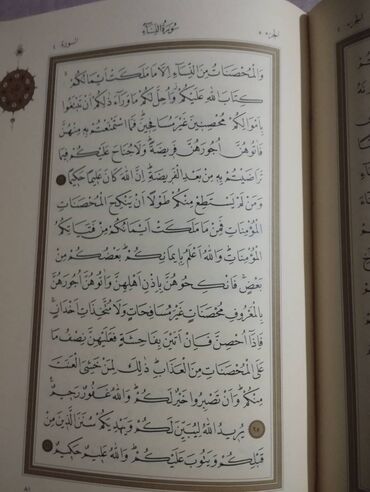 الجزء ٥ سورة النساء السورة ٤
وَالْمُحْصَنَاتُ مِنَ النِّسَاءِ اِلَّا مَا مَلَكَتْ اَيْمَانُكُمْ
كِتَابَ اللّٰهِ عَلَيْكُمْ وَاُحِلَّ لَكُمْ مَا وَرَاءَ ذٰلِكُمْ اَنْ تَبْتَغُوا
بِاَمْوَالِكُمْ مُحْصِنِينَ غَيْرَ مُسَافِحِينَ فَمَا اسْتَمْتَعْتُمْ بِهِ مِنْهُنَّ
فَاٰتُوهُنَّ اُجُورَهُنَّ فَرِيضَةً وَلَا جُنَاحَ عَلَيْكُمْ فِيمَا
تَرَاضَيْتُمْ بِهِ مِنْ بَعْدِ الْفَرِيضَةِ اِنَّ اللّٰهَ كَانَ عَلِيمًا حَكِيمًا
وَمَنْ لَمْ يَسْتَطِعْ مِنْكُمْ طَوْلًا اَنْ يَنْكِحَ الْمُحْصَنَاتِ
الْمُؤْمِنَاتِ فَمِنْ مَا مَلَكَتْ اَيْمَانُكُمْ مِنْ فَتَيَاتِكُمُ
الْمُؤْمِنَاتِ وَاللّٰهُ اَعْلَمُ بِاِيمَانِكُمْ بَعْضُكُمْ مِنْ
بَعْضٍ فَانْكِحُوهُنَّ بِاِذْنِ اَهْلِهِنَّ وَاٰتُوهُنَّ اُجُورَهُنَّ
بِالْمَعْرُوفِ مُحْصَنَاتٍ غَيْرَ مُسَافِحَاتٍ وَلَا مُتَّخِذَاتِ اَخْدَانٍ
فَاِذَا اُحْصِنَّ فَاِنْ اَتَيْنَ بِفَاحِشَةٍ فَعَلَيْهِنَّ نِصْفُ مَا
عَلَى الْمُحْصَنَاتِ مِنَ الْعَذَابِ ذٰلِكَ لِمَنْ خَشِيَ الْعَنَتَ
مِنْكُمْ وَاَنْ تَصْبِرُوا خَيْرٌ لَكُمْ وَاللّٰهُ غَفُورٌ رَحِيمٌ
٢٥ يُرِيدُ اللّٰهُ لِيُبَيِّنَ لَكُمْ وَيَهْدِيَكُمْ سُنَنَ الَّذِينَ مِنْ
قَبْلِكُمْ وَيَتُوبَ عَلَيْكُمْ وَاللّٰهُ عَلِيمٌ حَكِيمٌ